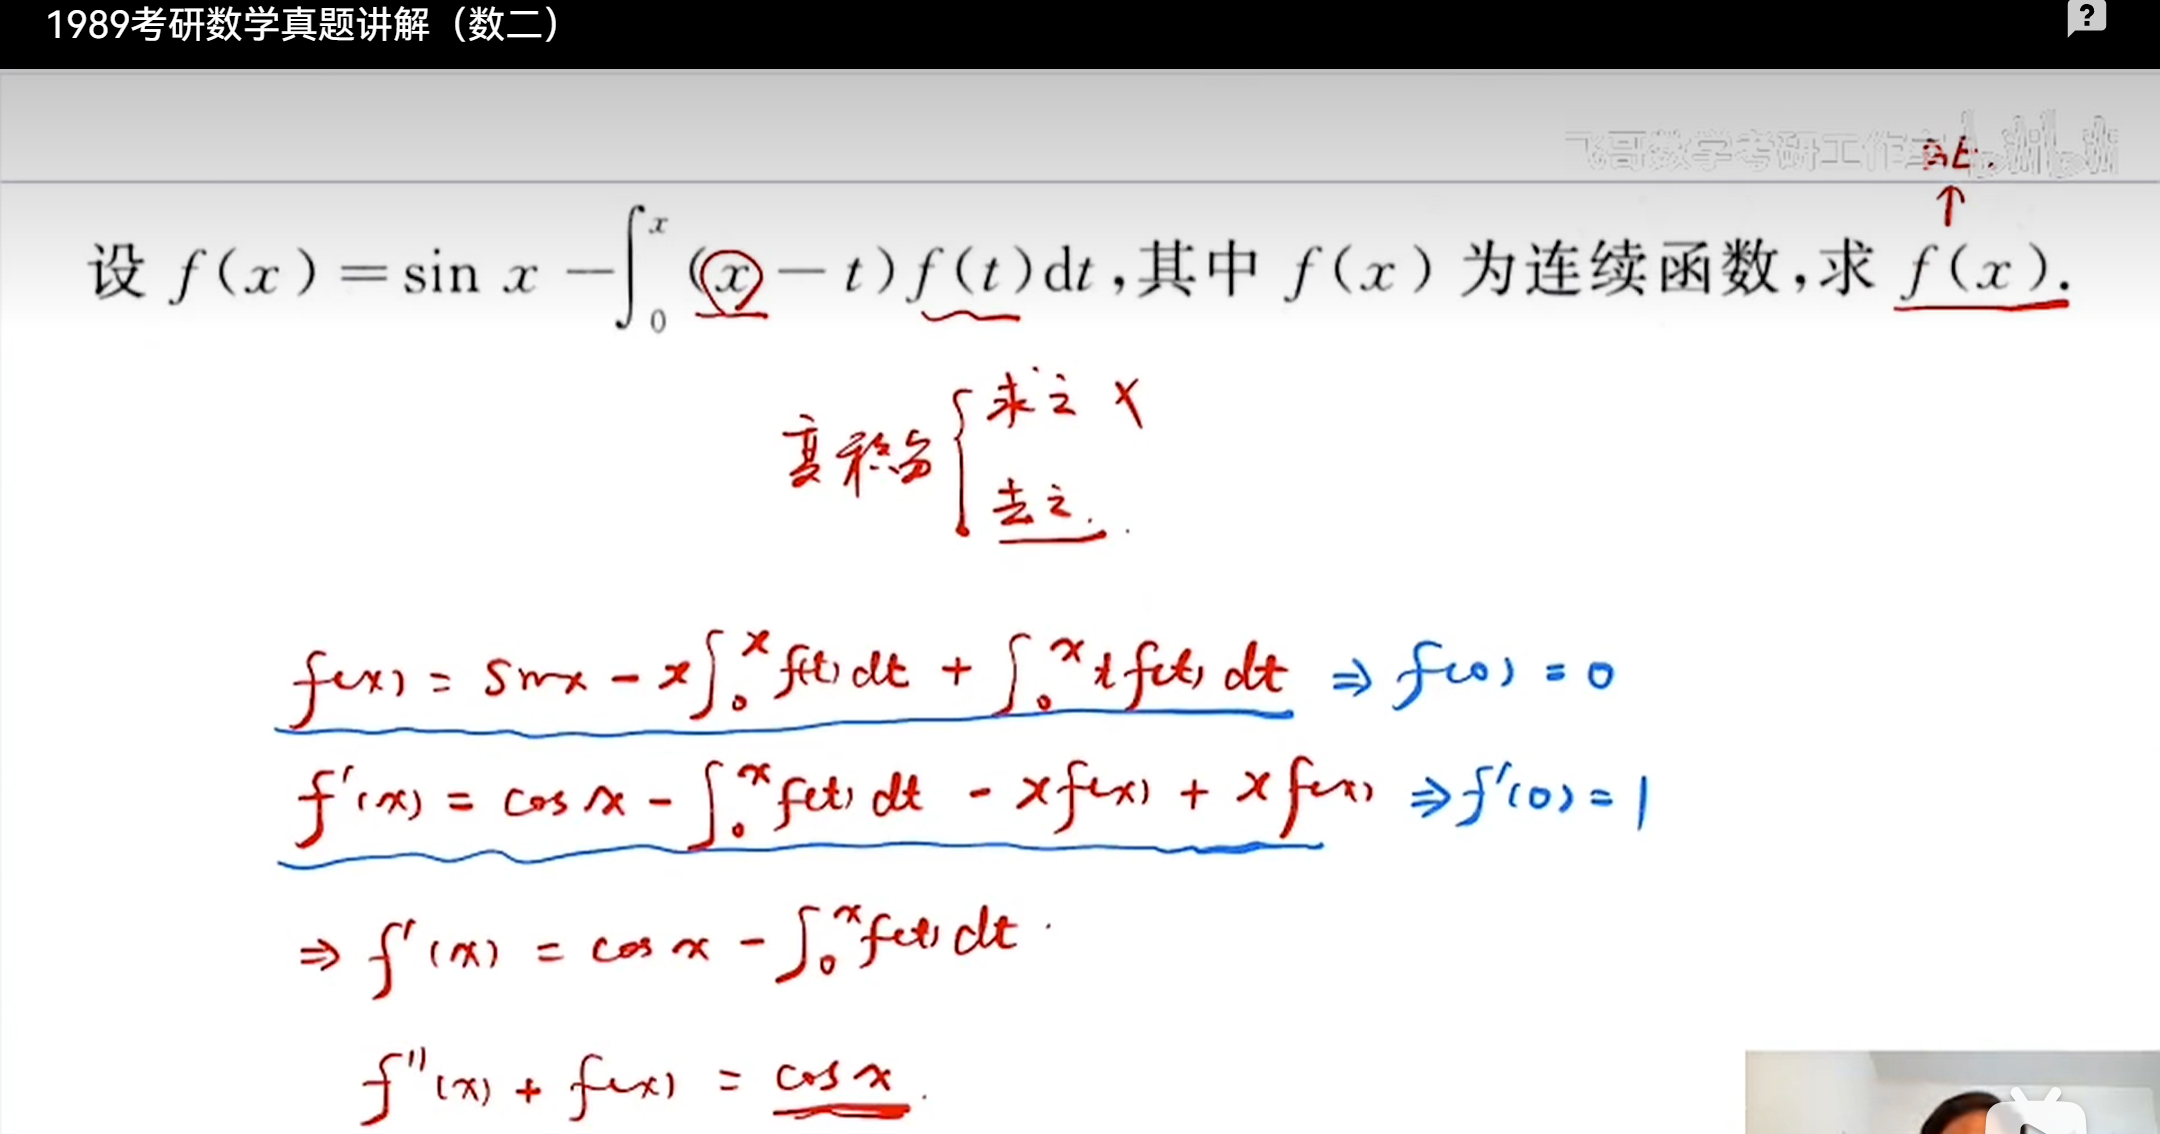 1989考研数学真题讲解（数二）
?
飞哥数学考研工作室
设 f(x)=sin x-∫₀ˣ(x-t)f(t)dt,其中 f(x) 为连续函数,求 f(x).
变积分 { 求之 ×
去之.
f(x) = sinx - x∫₀ˣf(t)dt + ∫₀ˣtf(t)dt ⇒ f(0) = 0
f'(x) = cosx - ∫₀ˣf(t)dt - xf(x) + xf(x) ⇒ f'(0) = 1
⇒ f'(x) = cosx - ∫₀ˣf(t)dt.
f''(x) + f(x) = cosx.